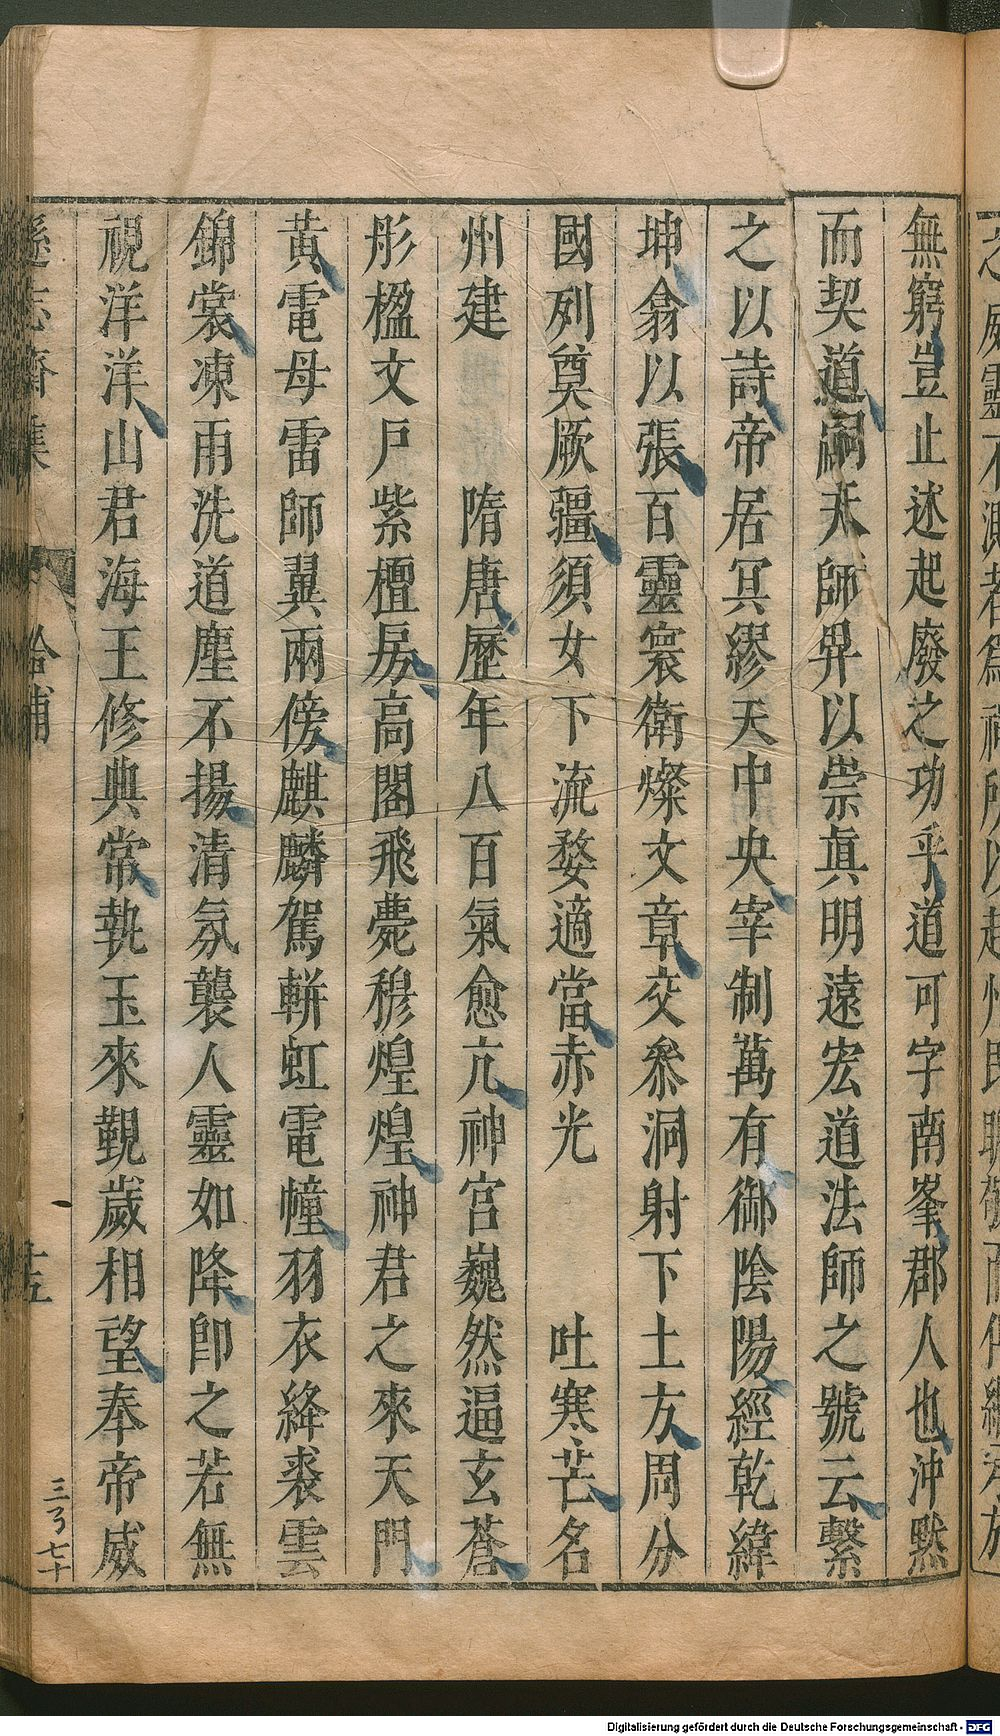 無窮豈止述起廢之功乎道可字南峯郡人也沖默
而契道嗣天師畀以崇眞明遠宏道法師之號云繫
之以詩帝居冥繆天中央宰制萬有御陰陽經乾緯
坤翕以張百靈寰衛燦文章交叅洞射下土方周分
國列奠厥疆須女下流婺適當赤光 吐寒芒名
州建 隋唐歷年八百氣愈亢神宮巍然逼玄蒼
彤楹文戶紫檀房高閣飛甍穆煌煌神君之來天門
黃電母雷師翼兩傍麒麟駕軿虹電幢羽衣絳裘雲
錦裳凍雨洗道塵不揚清氛襲人靈如降卽之若無
視洋洋山君海王修典常執玉來覲歲相望奉帝威
遜志齋集 拾補 十五
三 七十
Digitalisierung gefördert durch die Deutsche Forschungsgemeinschaft - DFG